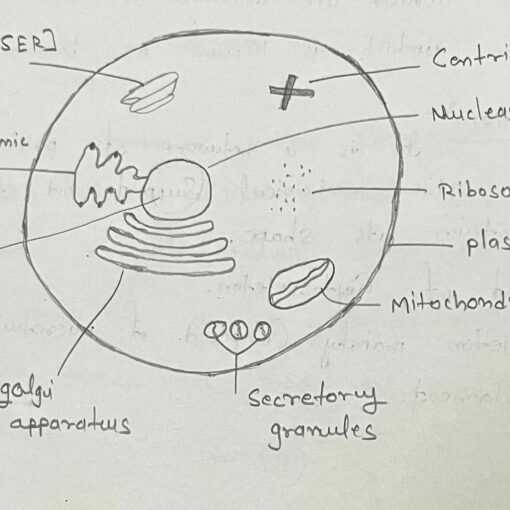 SER]
Centri
Nuclea
mic
Riboso
plas
Mitochond
golgi
apparatus
Secretory
granules